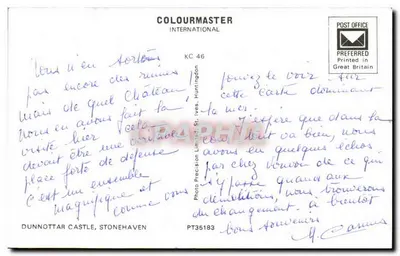 COLOURMASTER
INTERNATIONAL
POST OFFICE
PREFERRED
Printed in
Great Britain
KC 46
Nous n'en sortons
pas encore des ruines
mais de quel Château !
nous en avons fait la
visite hier cela
devait être une
place forte de défense
c'est un ensemble
magnifique et
comme vous
pouvez le voir sur
cette carte dominant
la mer.
J'espère que dans la
tout va bien, nous
avons eu quelques échos
par chez de ce qui
s'y passe quand aux
démolitions, nous trouverons
du changement. à bientôt
bons souvenirs
Photo Precision Limited, St. Ives, Huntingdon
DUNNOTTAR CASTLE, STONEHAVEN
PT35183